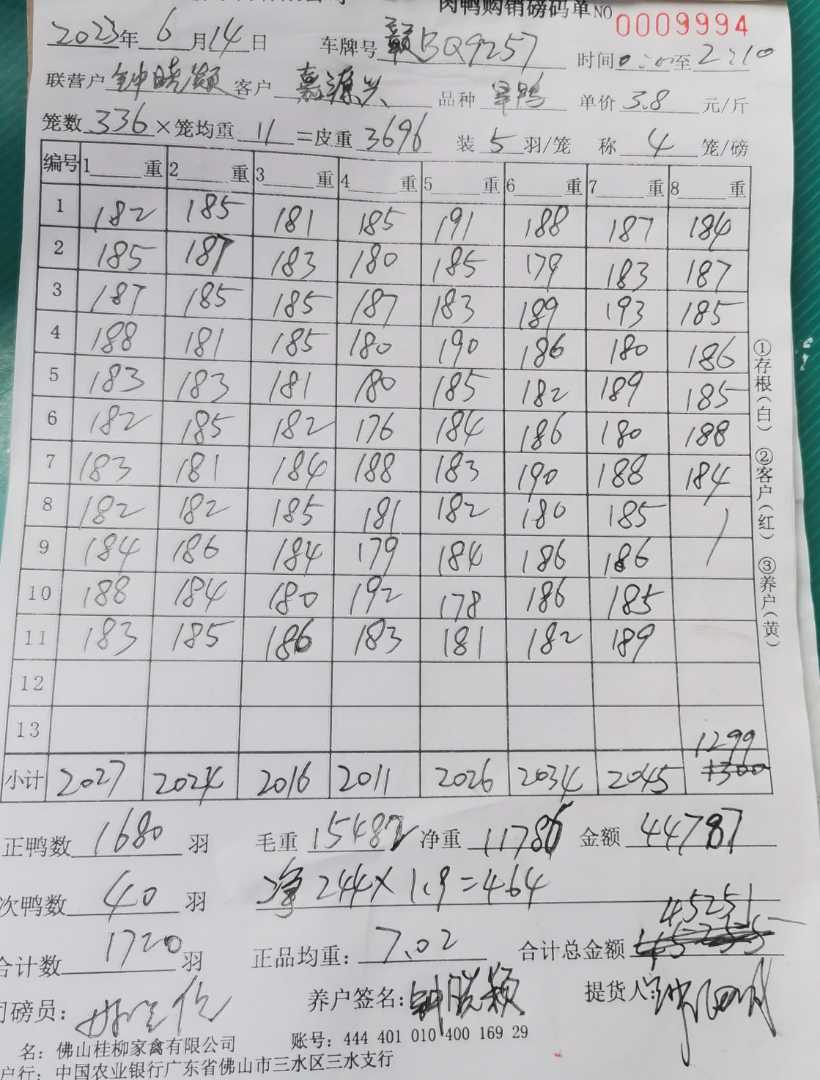 肉鸭购销磅码单 NO 0009994
2023年 6 月 14 日 车牌号 赣BQ9257 时间 至
联营户 钟晓颖 客户 嘉源兴 品种 单价 3.8 元/斤
笼数 336 ×笼均重 11 =皮重 3696 装 5 羽/笼 称 4 笼/磅
编号 1 重 2 重 3 重 4 重 5 重 6 重 7 重 8 重
1 182 185 181 185 191 188 187 184
2 185 187 183 180 185 179 183 187
3 187 185 185 187 183 189 193 185
4 188 181 185 180 190 186 180 186
5 183 183 181 180 185 182 189 185
6 182 185 182 176 184 186 180 188
7 183 181 184 188 183 190 188 184
8 182 182 185 181 182 180 185
9 184 186 184 179 184 186 186
10 188 184 180 192 178 186 185
11 183 185 186 183 181 182 189
12
13
1299
小计 2027 2024 2016 2011 2026 2034 2045 1300
正鸭数 1680 羽 毛重 15482 净重 11786 金额 44787
次鸭数 40 羽 净 244×1.9=464
45251
合计数 1720 羽 正品均重: 7.02 合计总金额
司磅员: 养户签名: 钟晓颖 提货人:
名: 佛山桂柳家禽有限公司 账号: 444 401 010 400 169 29
户行: 中国农业银行广东省佛山市三水区三水支行
①存根(白) ②客户(红) ③养户(黄)